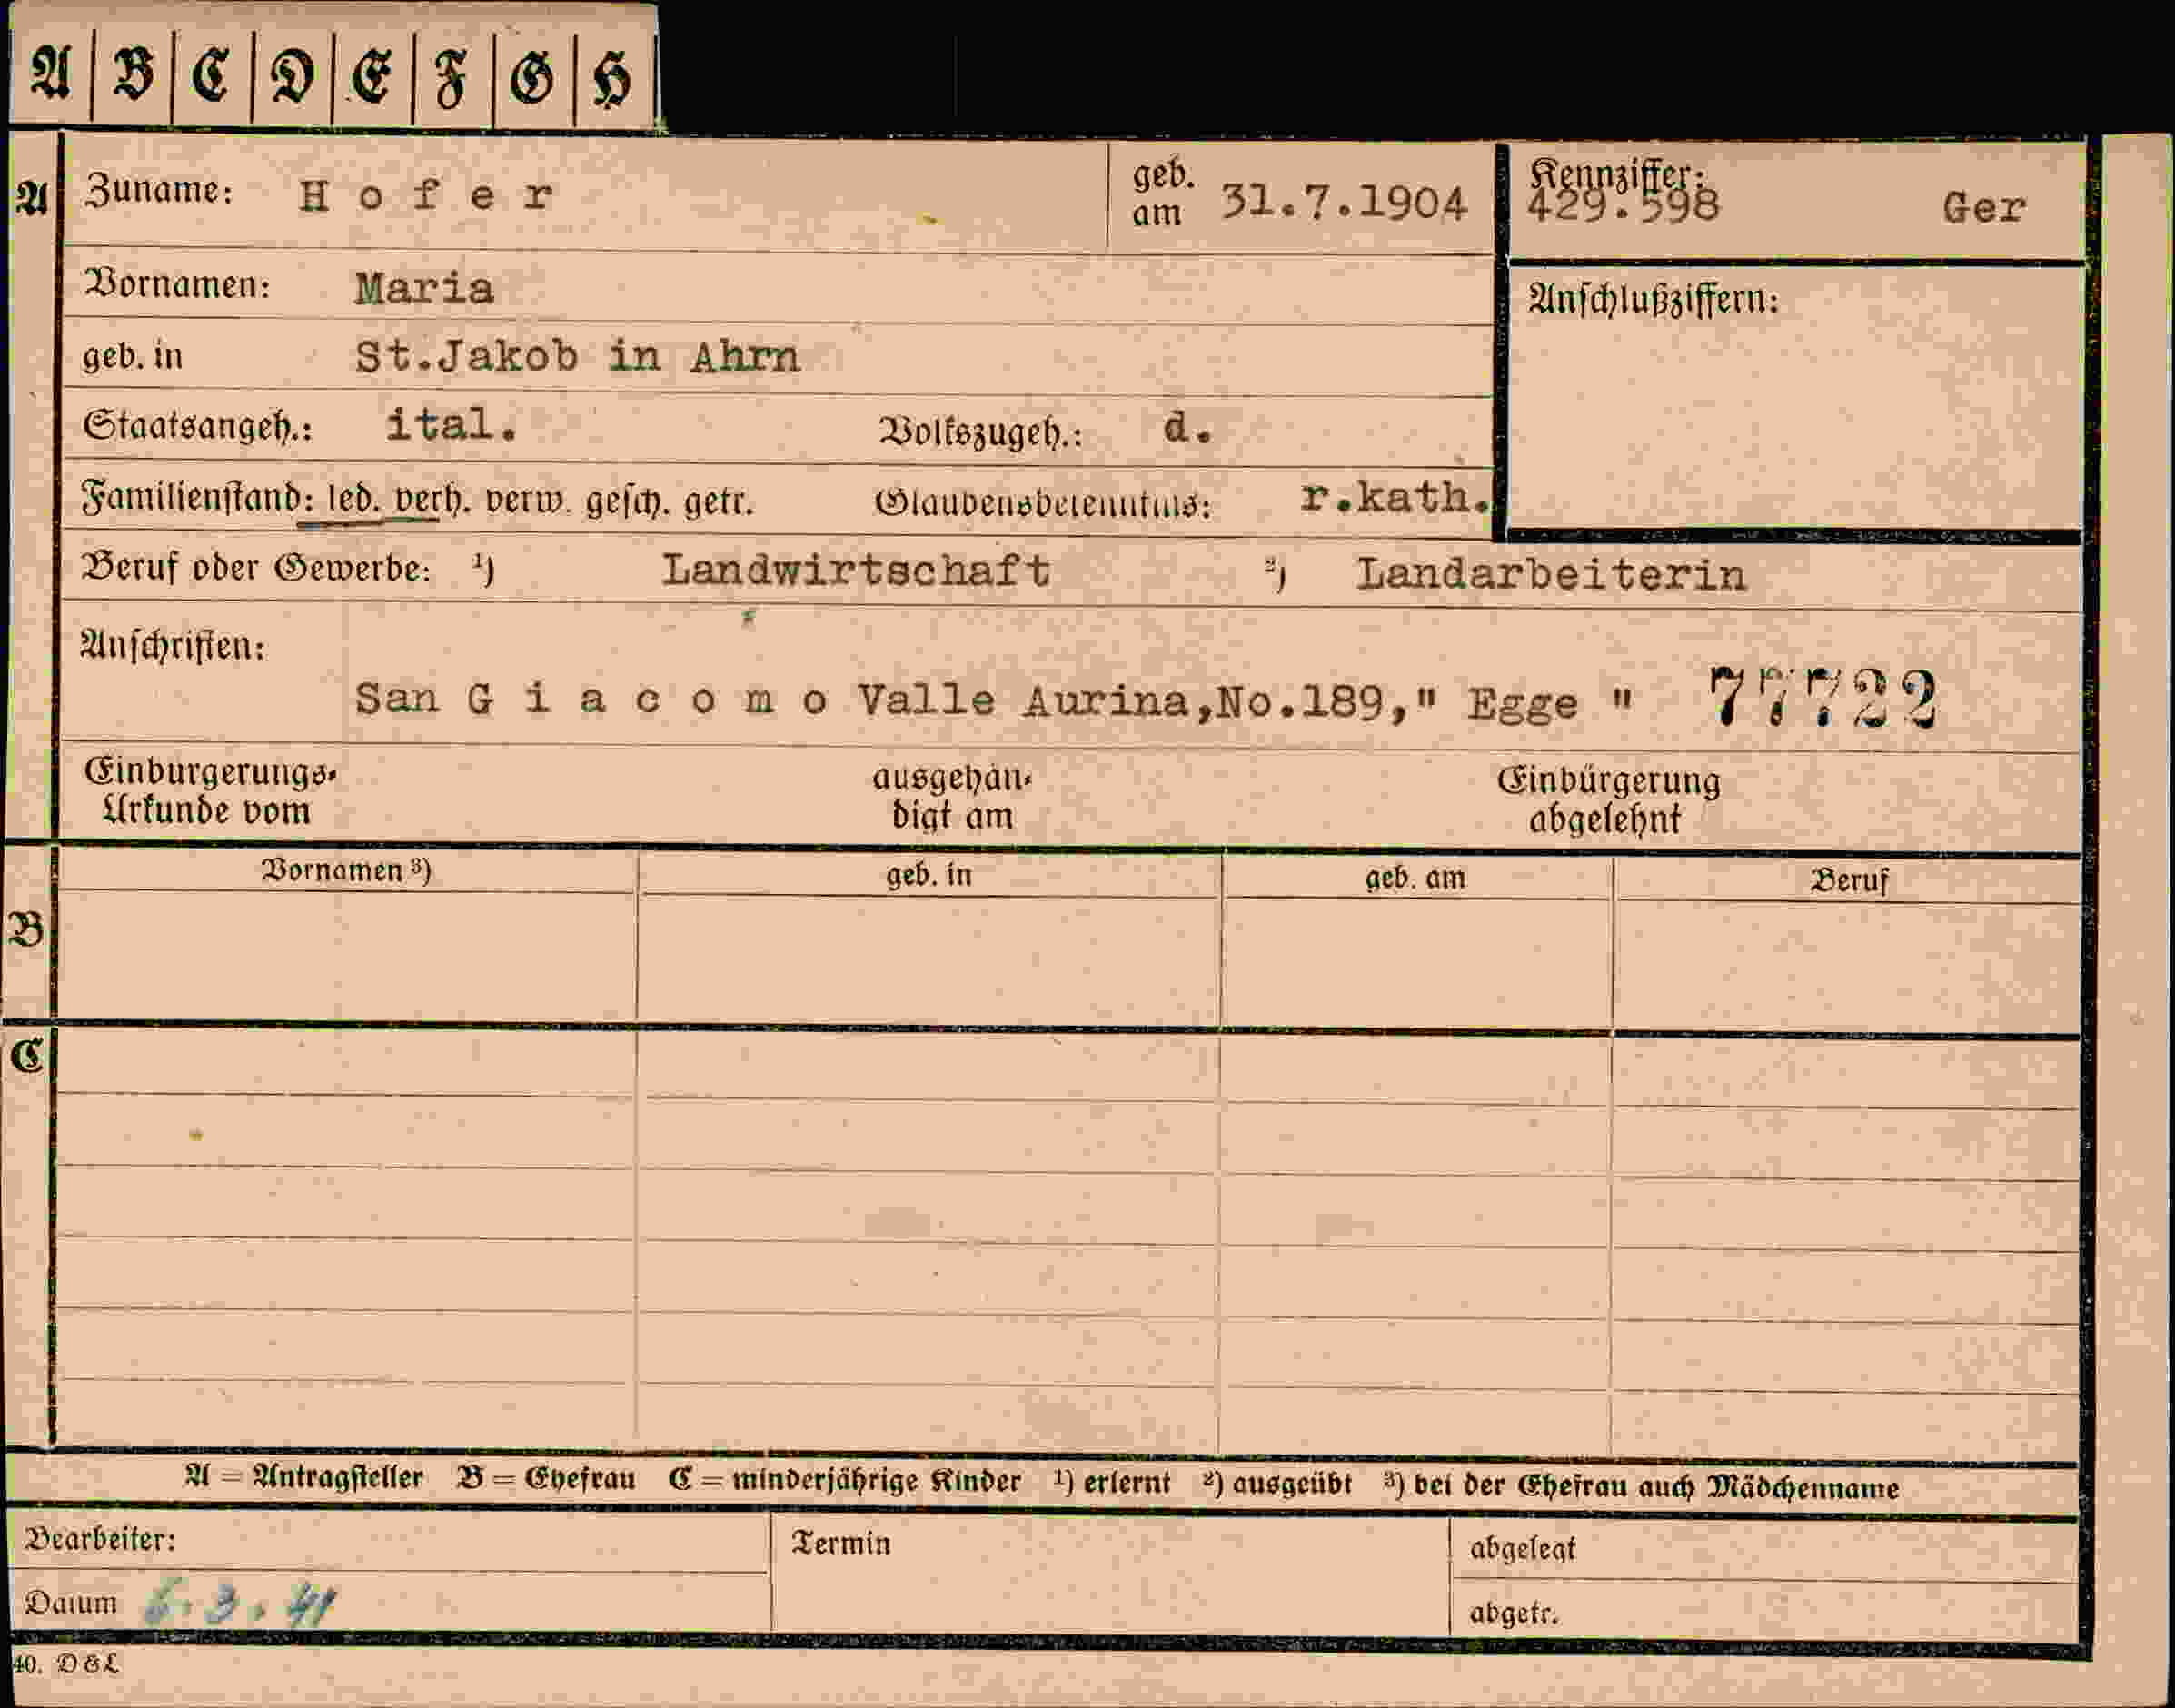 A B C D E F G H
A Zuname: H o f e r geb. am 31.7.1904 Kennziffer: 429.598 Ger
Vornamen: Maria Anschlußziffern:
geb. in St.Jakob in Ahrn
Staatsangeh.: ital. Volkszugeh.: d.
Familienstand: led. verh. verw. gesch. getr. Glaubensbekenntnis: r.kath.
Beruf oder Gewerbe: ¹) Landwirtschaft ²) Landarbeiterin
Anschriften:
San G i a c o m o Valle Aurina,No.189," Egge " 77722
Einbürgerungs- ausgehän- Einbürgerung
Urkunde vom digt am abgelehnt
Vornamen ³) geb. in geb. am Beruf
B
C
A = Antragsteller B = Ehefrau C = minderjährige Kinder ¹) erlernt ²) ausgeübt ³) bei der Ehefrau auch Mädchenname
Bearbeiter: Termin abgelegt
Datum 6.3.41 abgetr.
40. D&L